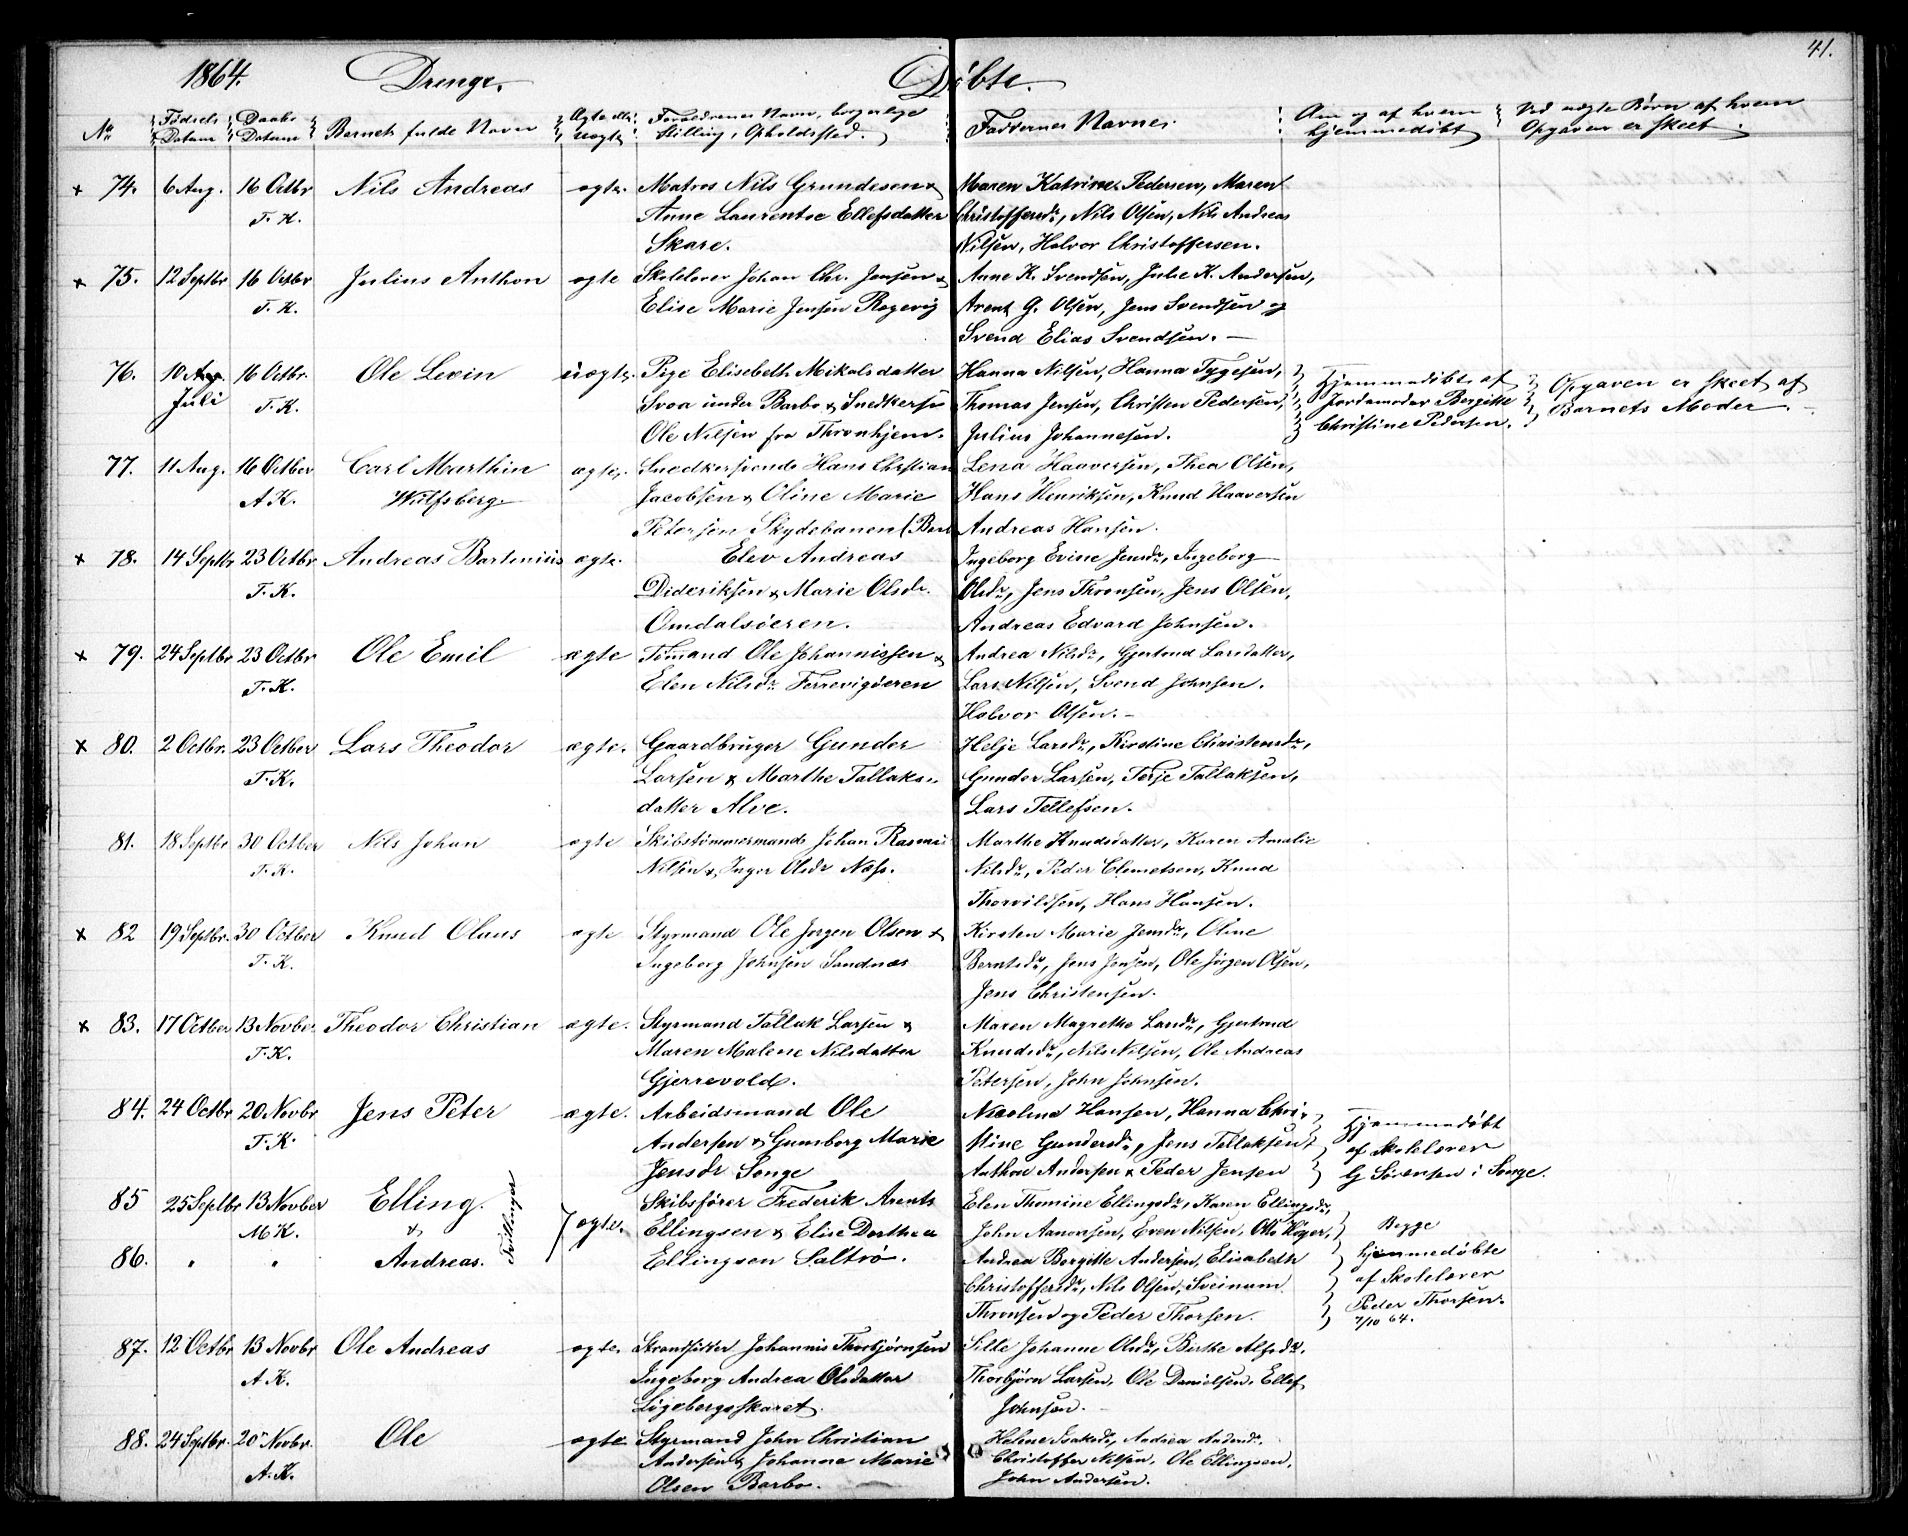 41.
1864. Drenge. Døbte.
No Fødsels Datum Daabs Datum Barnets fulde Navn Ægte eller uægte Forældrenes Navn, borgerlige Stilling, Opholdssted. Faddernes Navne. Om og af hvem hjemmedøbt Ved uægte Børn af hvem Opgaven er skeet.
x 74. 6 Aug. 16 Octbr Nils Andreas ægte. Matros Nils Grundesen & Maren Katrine Pedersen, Maren
T. K. Anne Laurentse Ellefsdatter Christoffersdr, Nils Olsen, Nils Andreas
Skare. Nilsen, Halvor Christoffersen.
x 75. 12 Septbr 16 Octbr Julius Anthon ægte Skolelærer Johan Chr. Jensen & Anne K. Svendsen, Julie K. Andersen,
T. K. Elise Marie Jensen Rægevig Arent G. Olsen, Jens Svendsen og
Svend Elias Svendsen.
76. 10 Aug. 16 Octbr. Ole Levin uægte. Pige Elisebeth Mikalsdatter Hanna Nilsen, Hanna Tygesen, Hjemmedøbt af Opgaven er skeet af
Juli T. K. Svoa under Barbo & Snedkersv Thomas Jensen, Christen Pedersen, Jordemoder Bergitte Barnets Moder.
Ole Nilsen fra Thronhjem. Julius Johannesen. Christine Pedersen.
77. 11 Aug. 16 Octber Carl Marthin ægte. Snedkersvend Hans Christian Lena Haaversen, Thea Olsen,
A. K. Wulfsberg Jacobsen & Oline Marie Hans Henriksen, Knud Haaversen
Petersen Skydebanen (Barb Andreas Hansen.
x 78. 14 Septbr 23 Octbr Andreas Bartinius ægte. Elev Andreas Ingeborg Evine Jensdr, Ingeborg
T. K. Dideriksen & Marie Olsdr. Olsdr, Jens Thronsen, Jens Olsen,
Omdalsøeren. Andreas Edvard Johnsen.
x 79. 24 Septbr 23 Octbr Ole Emil ægte Tømand Ole Johannissen & Andrea Nilsdr, Gjertrud Larsdatter,
T. K. Elen Nilsdr Ferrevigøeren Lars Nilsen, Svend Johnsen.
Halvor Olsen.
x 80. 2 Octbr. 23 Octber Lars Theodor ægte. Gaardbruger Gunder Helje Larsdr, Kirstine Christensdr,
T. K. Larsen & Marthe Tallaks- Gunder Larsen, Terje Tallaksen,
datter Alve. Lars Tellefsen.
81. 18 Septbr 30 Octber Nils Johan ægte Skibstømmermand Johan Rasmus Marthe Knudsdatter, Karen Amalie
T. K. Nilsen & Inger Olsdr Næss. Nilsdr, Peder Clemetsen, Knud
Thorvildsen, Hans Hansen.
x 82 19 Septbr. 30 Octber Knud Olaus ægte Styrmand Ole Jørgen Olsen & Kirsten Marie Jensdr, Oline
T. K. Ingeborg Johnsen Sandnæs Berntsdr, Jens Jensen, Ole Jørgen Olsen,
Jens Christensen.
x 83. 17 Octber 13 Novber. Theodor Christian ægte. Styrmand Tallak Larsen & Maren Magrethe Larsdr, Gjertrud
T. K. Maren Malene Nilsdatter Knudsdr, Nils Nilsen, Ole Andreas
Gjerrevold. Petersen, John Johnsen.
84. 24 Octbr 20 Novbr Jens Peter ægte. Arbeidsmand Ole Nicoline Hansen, Hanna Chri- Hjemmedøbt
T. K. Andersen & Gunborg Marie stine Gundersdr, Jens Tallaksen, af Skolelærer
Jensdr Songe Anthon Andersen & Peder Jensen G Sørensen i Songe.
85 25 Septbr 13 Novber Elling. Tvillinger Skibsfører Frederik Arents Elen Thomine Ellingsdr, Karen Ellingsdr,
M K. & ægte. Ellingsen & Elise Dorthea John Aanonsen, Even Nilsen, Ole Høyer, Begge
86. " " Andreas. Ellingsen Saltrø. Andrea Bergitte Andersen, Elisabeth hjemmedøbte
Christoffersdr, Nils Olsen, Sveinum af Skolelærer
Thronsen og Peder Thorsen. Peder Thorsen.
7/10 64.
87. 12 Octbr 13 Novbr Ole Andreas ægte. Strandsidder Johannis Thorbjørnsen Sille Johanne Olsdr, Birthe Alfsdr,
A. K. Ingeborg Andrea Olsdatter Thorbjørn Larsen, Ole Danielsen, Ellef
Ligebergsskaret. Johnsen.
88. 24 Septbr. 20 Novbr. Ole ægte Styrmand John Christian Helene Isaksdr, Andrea Andersdr.
A. K. Andersen & Johanne Marie Christoffer Nilsen, Ole Ellingsen,
Olsen Barbo. John Andersen.